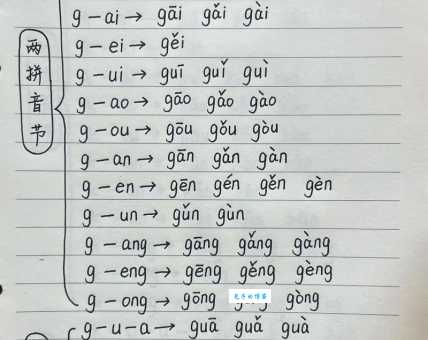 两拼音节
g－ai→ gāi gǎi gài
g－ei→ gěi
g－ui→ guī guǐ guì
g－ao→ gāo gǎo gào
g－ou→ gōu gǒu gòu
g－an→ gān gǎn gàn
g－en→ gēn gén gěn gèn
g－un→ gǔn gùn
g－ang→ gāng gǎng gàng
g－eng→ gēng gěng gèng
g－ong→ gōng gòng
g－u－a→ guā guǎ guà